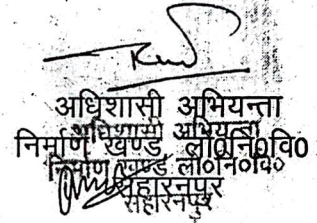 अधिशासी अभियन्ता
अधिशासी अभियन्ता
निर्माण खण्ड लो0नि0वि0
निर्माण खण्ड लो०नि०वि०
सहारनपुर
सहारनपुर